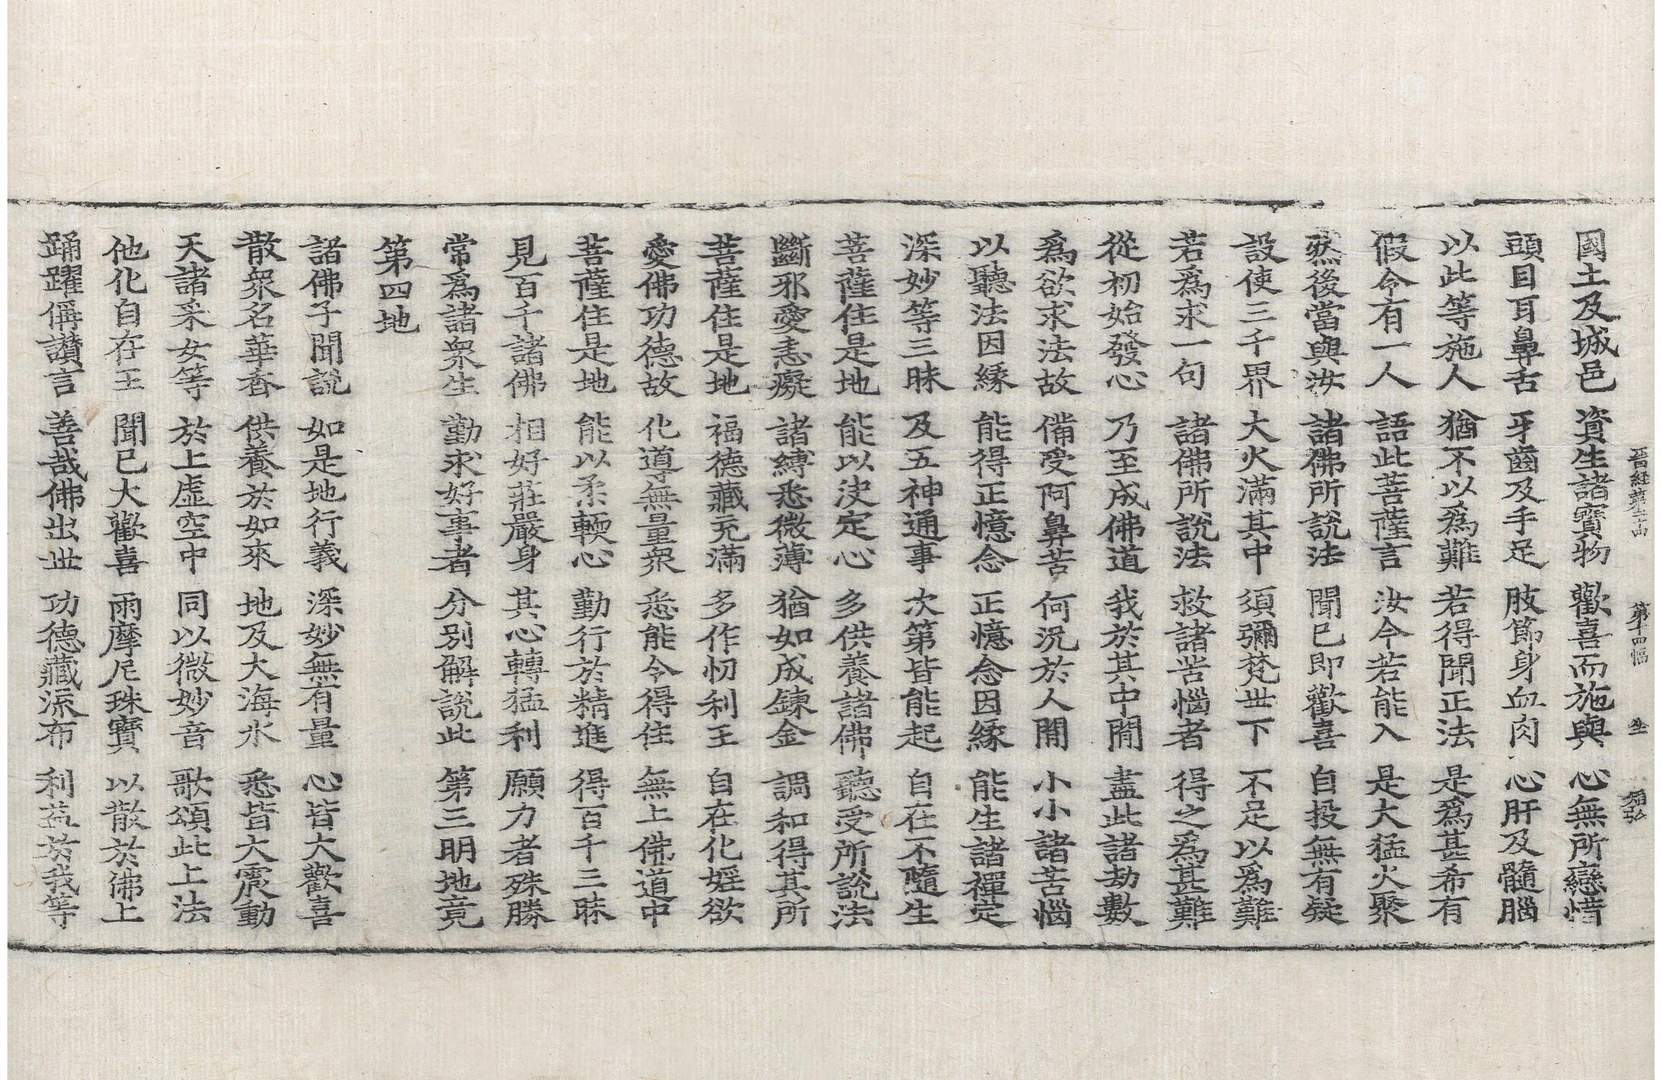 國土及城邑 資生諸寶物 歡喜而施與 心無所戀惜
頭目耳鼻舌 牙齒及手足 肢節身血肉 心肝及髓腦
以此等施人 猶不以爲難 若得聞正法 是爲甚希有
假令有一人 語此菩薩言 汝今若能入 是大猛火聚
然後當與汝 諸佛所說法 聞已即歡喜 自投無有疑
設使三千界 大火滿其中 須彌梵世下 不足以爲難
若爲求一句 諸佛所說法 救諸苦惱者 得之爲甚難
從初始發心 乃至成佛道 我於其中間 盡此諸劫數
爲欲求法故 備受阿鼻苦 何況於人間 小小諸苦惱
以聽法因緣 能得正憶念 正憶念因緣 能生諸禪定
深妙等三昧 及五神通事 次第皆能起 自在不隨生
菩薩住是地 能以決定心 多供養諸佛 聽受所說法
斷邪愛恚癡 諸縛悉微薄 猶如成鍊金 調和得其所
菩薩住是地 福德藏充滿 多作忉利王 自在化婬欲
愛佛功德故 化導無量衆 悉能令得住 無上佛道中
菩薩住是地 能以柔輭心 勤行於精進 得百千三昧
見百千諸佛 相好莊嚴身 其心轉猛利 願力者殊勝
常爲諸衆生 勤求好事者 分別解說此 第三明地竟
第四地
諸佛子聞說 如是地行義 深妙無有量 心皆大歡喜
散衆名華香 供養於如來 地及大海水 悉皆大震動
天諸采女等 於上虛空中 同以微妙音 歌頌此上法
他化自在王 聞已大歡喜 雨摩尼珠寶 以散於佛上
踊躍偁讃言 善哉佛出世 功德藏流布 利益於我等
第十四幅